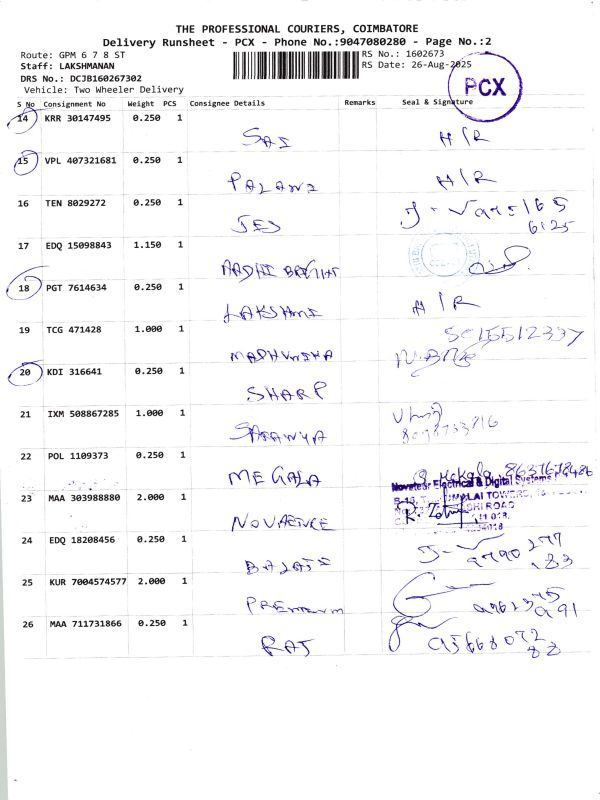 THE PROFESSIONAL COURIERS, COIMBATORE
Delivery Runsheet - PCX - Phone No.:9047080280 - Page No.:2
Route: GPM 6 7 8 ST
RS No.: 1602673
Staff: LAKSHMANAN
RS Date: 26-Aug-2025
DRS No.: DCJB160267302
Vehicle: Two Wheeler Delivery
PCX
S No Consignment No Weight PCS Consignee Details Remarks Seal & Signature
14 KRR 30147495 0.250 1
SAI H/R
15 VPL 407321681 0.250 1
PALANI H/R
16 TEN 8029272 0.250 1
JEJ
17 EDQ 15098843 1.150 1
AADHI
18 PGT 7614634 0.250 1
LAKSHMI H/R
19 TCG 471428 1.000 1
20 KDI 316641 0.250 1
SHARP
21 IXM 508867285 1.000 1
SARANYA
22 POL 1109373 0.250 1
MEGALA
Novatear Electrical & Digital Systems
23 MAA 303988880 2.000 1
24 EDQ 18208456 0.250 1
BALAJI
25 KUR 7004574577 2.000 1
PREMIUM
26 MAA 711731866 0.250 1
RAJ